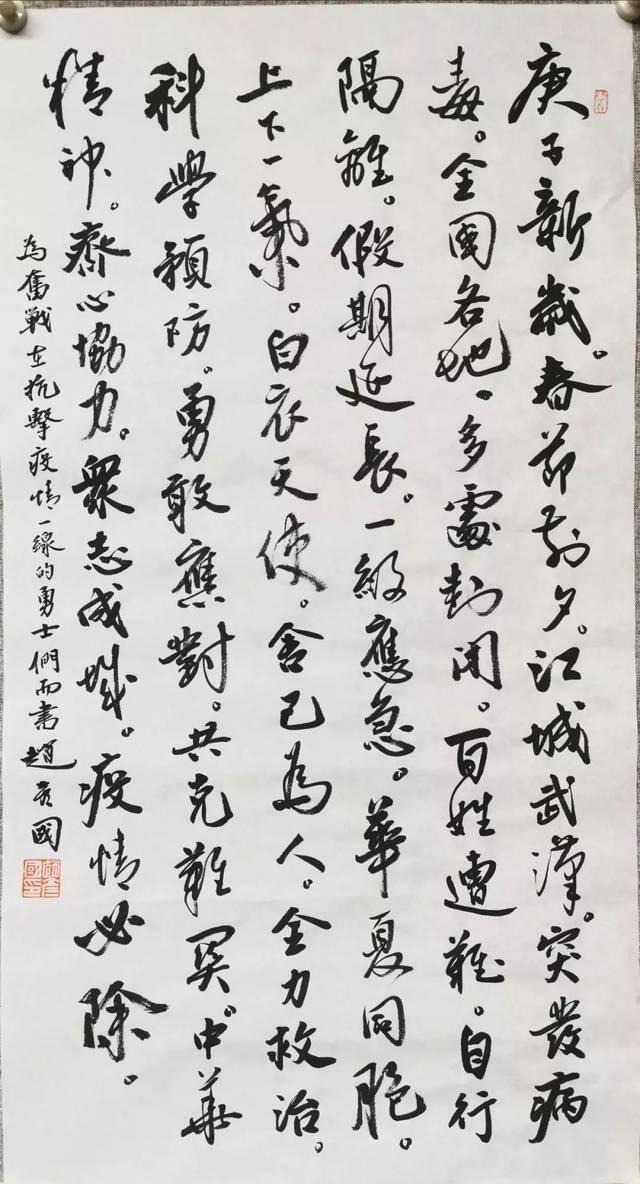 庚子新歲。春節前夕。江城武漢。突發病
毒。全國各地。多處封閉。百姓遭難。自行
隔離。假期延長。一級應急。華夏同胞。
上下一氣。白衣天使。舍己為人。全力救治。
科學預防。勇敢應對。共克難關。中華
精神。齊心協力。眾志成城。疫情必除。
為奮戰在抗擊疫情一線的勇士們而書 趙 國